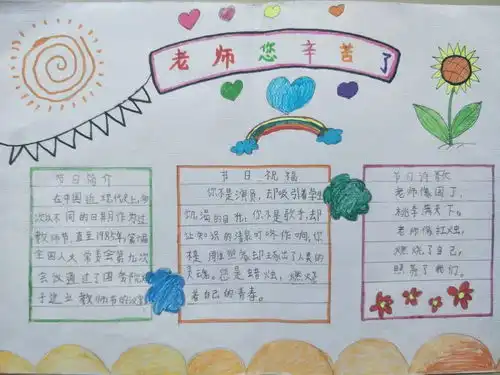 老师您辛苦了
节日简介
在中国近、现代史上,多
次以不同的日期作为过
教师节,直至1985年,第六届
全国人大常委会第九次
会议通过了国务院关
于建立教师节的议案
节日祝福
你不是演员,却吸引着学生
饥渴的目光;你不是歌手,却
让知识的清泉叮咚作响,你
不是雕塑家却塑造出了人类的
灵魂。您是蜡烛,燃烧
着自己的青春。
节日诗歌
老师像园丁,
桃李满天下。
老师像红烛,
燃烧了自己,
照亮了我们。